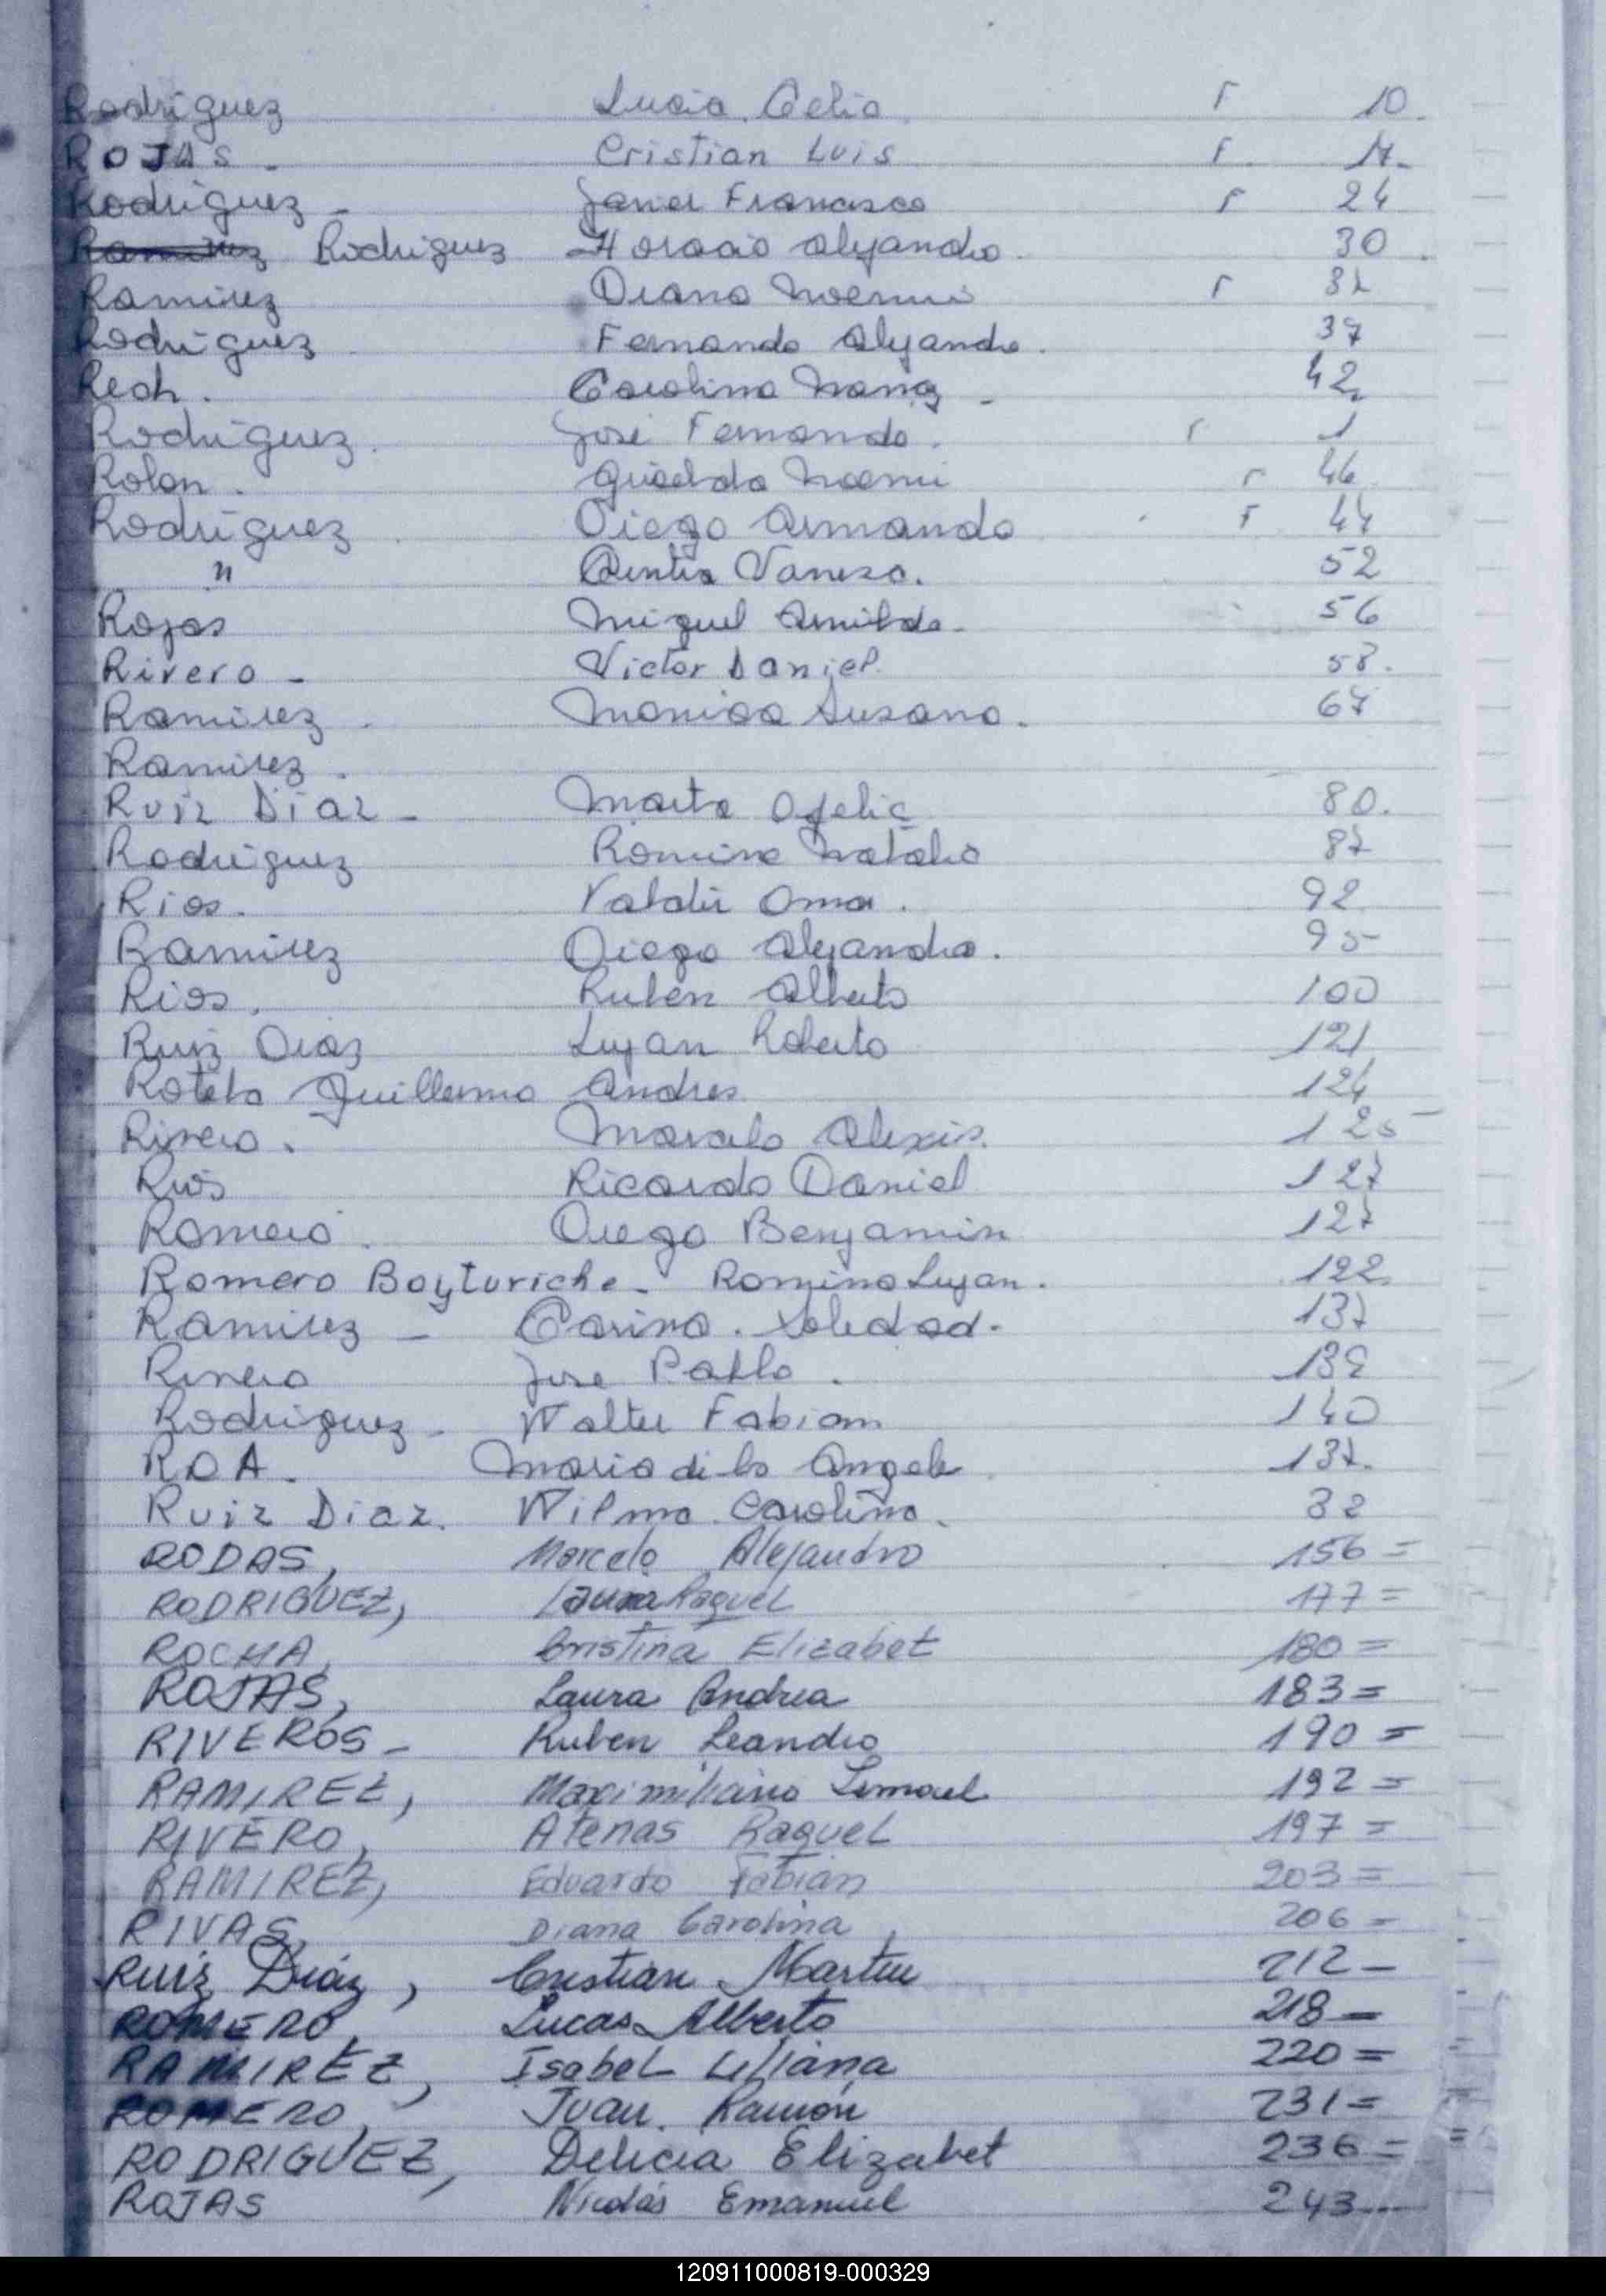 Rodriguez Lucia Celia F 10.
ROJAS - Cristian Luis F. 17-
Rodriguez - Javier Francisco F 24
Ramirez Rodriguez Horacio Alejandro. 30
Ramirez Diana Noemi F 32
Rodriguez Fernando Alejandro. 37
Rech. Carolina 42
Rodriguez. José Fernando. F 1
Rolon. Griselda Noemi F 46
Rodriguez Diego Armando F 44
" Cintia Vanesa. 52
Rojas Miguel 56
Rivero - Victor Daniel. 58.
Ramirez. Monica Susana. 67
Ramirez.
Ruiz Diaz - Marta Ofelia 80.
Rodriguez Romina Natalia 87
Rios. Omar. 92
Ramirez Diego Alejandro. 95
Rios. Rubén Alberto 100
Ruiz Diaz Lujan Roberto 121
Rotela Guillermo Andres 124
Rivero. Marcelo Alexis. 125
Rios Ricardo Daniel 127
Romero. Diego Benjamin 127
Romero Boyturiche - Romina Lujan. 122
Ramirez - Carina. Soledad. 137
Rivero Jose Pablo.
Rodriguez - Walter Fabian 140
ROA. Maria de los Angeles 137.
Ruiz Diaz. Wilma Carolina. 32
RODAS, Marcelo Alejandro 156=
RODRIGUEZ, Laura Raquel 177=
ROCHA, Cristina Elizabet 180=
ROJAS, Laura Andrea 183=
RIVEROS - Ruben Leandro 190=
RAMIREZ, Maximiliano 192=
RIVERO, Atenas Raquel 197=
RAMIREZ, Eduardo Fabián 203=
RIVAS, Diana Carolina, 206-
Ruiz Diaz, Cristian Martin 212-
ROMERO, Lucas Alberto 218-
RAMIREZ, Isabel Liliana 220=
ROMERO, Juan Ramón 231=
RODRIGUEZ, Delicia Elizabet 236=
ROJAS Nicolás Emanuel 243...
120911000819-000329